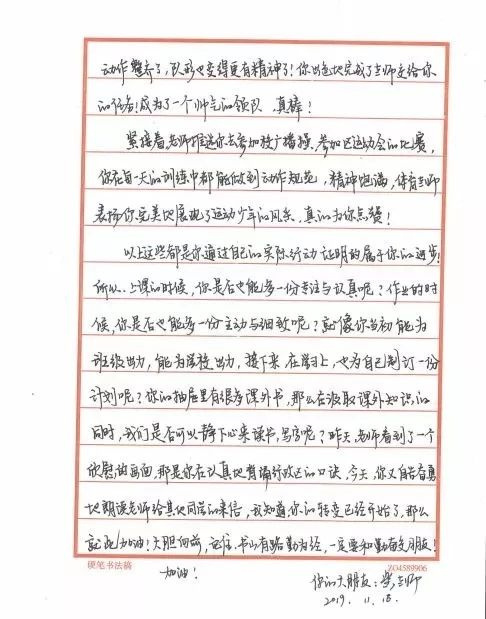 动作整齐了，队形也变得更有精神了！你出色地完成了老师交给你
的任务！成为了一个帅气的领队，真棒！
紧接着，老师推选你去参加校广播操、参加区运动会的比赛，
你在每一天的训练中都能做到动作规范，精神饱满，体育老师
表扬你完美地展现了运动少年的风采，真的为你点赞！
以上这些都是你通过自己的实际行动证明的属于你的进步！
所以，上课的时候，你是否也能多一份专注与认真呢？作业的时
候，你是否也能多一份主动与细致呢？就像你当初能为
班级出力，能为学校出力，接下来在学习上，也为自己制订一份
计划呢？你的抽屉里有很多课外书，那么在汲取课外知识的
同时，我们是否可以静下心来读书，写字呢？昨天，老师看到了一个
欣慰的画面，那是你在认真地背诵行政区的口诀，今天，你又自告奋勇
地朗读老师给其他同学的来信，我知道，你的转变已经开始了，那么
就此加油！大胆向前，记住，书山有路勤为径，一定要和勤奋交朋友！
加油！
硬笔书法稿 ZO4589906
你的大朋友：老师
2019. 11. 18.